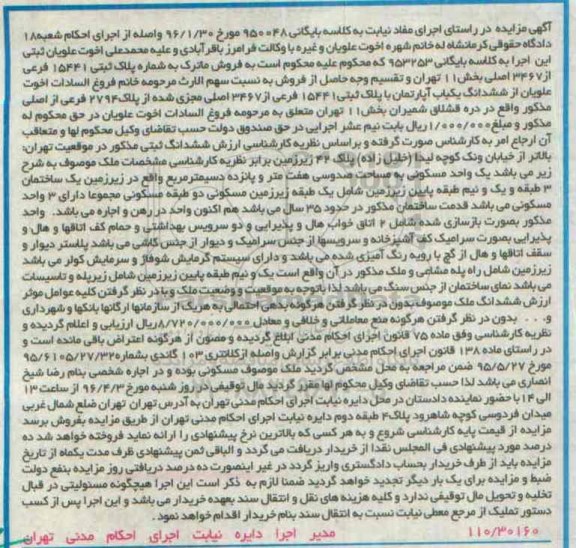 آگهی مزایده در راستای اجرای مفاد نیابت به کلاسه بایگانی ۹۵۰۰۴۸ مورخ ۹۶/۱/۳۰ واصله از اجرای احکام شعبه۱۸
دادگاه حقوقی کرمانشاه له خانم شهره اخوت علویان و غیره با وکالت فرامرز باقرآبادی و علیه محمدعلی اخوت علویان ثبتی
این اجرا به کلاسه بایگانی ۹۵۳۲۵۳ که محکوم علیه محکوم است به فروش ماترک به شماره پلاک ثبتی ۱۵۴۴۱ فرعی
از۳۴۶۷ اصلی بخش۱۱ تهران و تقسیم وجه حاصل از فروش به نسبت سهم الارث مرحومه خانم فروغ السادات اخوت
علویان از ششدانگ یکباب آپارتمان با پلاک ثبتی۱۵۴۴۱ فرعی از۳۴۶۷ اصلی مجزی شده از پلاک۲۷۹۴ فرعی از اصلی
مذکور واقع در دره قشلاق شمیران بخش۱۱ تهران متعلق به مرحومه فروغ السادات اخوت علویان در حق محکوم له
مذکور و مبلغ۱/۰۰۰/۰۰۰ریال بابت نیم عشر اجرایی در حق صندوق دولت حسب تقاضای وکیل محکوم لها و متعاقب
آن ارجاع امر به کارشناس صورت گرفته و براساس نظریه کارشناسی ارزش ششدانگ ثبتی مذکور در موقعیت تهران،
بالاتر از خیابان ونک کوچه لیدا (خلیل زاده) پلاک ۴۲ زیرزمین برابر نظریه کارشناسی مشخصات ملک موصوف به شرح
زیر می باشد یک واحد مسکونی به مساحت صدوسی هفت متر و پانزده دسیمترمربع واقع در زیرزمین یک ساختمان
۳ طبقه و یک و نیم طبقه پایین زیرزمین شامل یک طبقه زیرزمین مسکونی دو طبقه مسکونی مجموعا دارای ۳ واحد
مسکونی می باشد قدمت ساختمان مذکور در حدود ۳۵ سال می باشد هم اکنون واحد در رهن و اجاره می باشد. واحد
مذکور بصورت بازسازی شده شامل ۲ اتاق خواب هال و پذیرایی و دو سرویس بهداشتی و حمام کف اتاقها و هال و
پذیرایی بصورت سرامیک کف آشپزخانه و سرویسها از جنس سرامیک و دیوار از جنس کاشی می باشد پلاستر دیوار و
سقف اتاقها و هال از گچ با رویه رنگ آمیزی شده می باشد و دارای سیستم گرمایش شوفاژ و سرمایش کولر می باشد
زیرزمین شامل راه پله مشاعی و ملک مذکور در آن واقع است یک و نیم طبقه پایین زیرزمین شامل زیرپله و تاسیسات
می باشد نمای ساختمان از جنس سنگ می باشد لذا باتوجه به موقعیت و وضعیت ملک و با در نظر گرفتن کلیه عوامل موثر
ارزش ششدانگ ملک موصوف بدون در نظر گرفتن هرگونه بدهی احتمالی به هریک از سازمانها ارگانها بانکها و شهرداری
و... بدون در نظر گرفتن هرگونه منع معاملاتی و خلافی و معادل ۸/۷۲۰/۰۰۰/۰۰۰ریال ارزیابی و اعلام گردیده و
نظریه کارشناسی وفق ماده ۷۵ قانون اجرای احکام مدنی ابلاغ گردیده و مصون از هرگونه اعتراض باقی مانده است و
در راستای ماده ۱۳۸ قانون اجرای احکام مدنی برابر گزارش واصله ازکلانتری ۱۰۳ گاندی بشماره۹۵/۶۱۰۵/۲۷/۳۲
مورخ ۹۵/۵/۲۷ ضمن مراجعه به محل مشخص گردید ملک موصوف مسکونی بوده و در اجاره شخصی بنام رضا شیخ
انصاری می باشد لذا حسب تقاضای وکیل محکوم لها مقرر گردید مال توقیفی در روز شنبه مورخ ۹۶/۴/۳ از ساعت ۱۳
الی ۱۴ با حضور نماینده دادستان در محل دایره نیابت اجرای احکام مدنی تهران به آدرس تهران تهران ضلع شمال غربی
میدان فردوسی کوچه شاهرود پلاک۴ طبقه دوم دایره نیابت اجرای احکام مدنی تهران از طریق مزایده بفروش برسد
مزایده از قیمت پایه کارشناسی شروع و به هر کسی که بالاترین نرخ پیشنهادی را ارائه نماید فروخته خواهد شد ده
درصد مورد پیشنهادی فی المجلس نقدا از خریدار دریافت می گردد و الباقی ثمن پیشنهادی ظرف مدت یکماه از تاریخ
مزایده باید از طرف خریدار بحساب دادگستری واریز گردد در غیر اینصورت ده درصد دریافتی روز مزایده بنفع دولت
ضبط و مزایده برای یک بار دیگر تجدید خواهد گردید ضمنا لازم به ذکر است این اجرا هیچگونه مسئولیتی در قبال
تخلیه و تحویل مال توقیفی ندارد و کلیه هزینه های نقل و انتقال سند بعهده خریدار می باشد و این اجرا پس از کسب
دستور تملیک از مرجع معطی نیابت نسبت به انتقال سند بنام خریدار اقدام خواهد نمود.
۱۱۰/۳۰۱۶۰ مدیر اجرا دایره نیابت اجرای احکام مدنی تهران